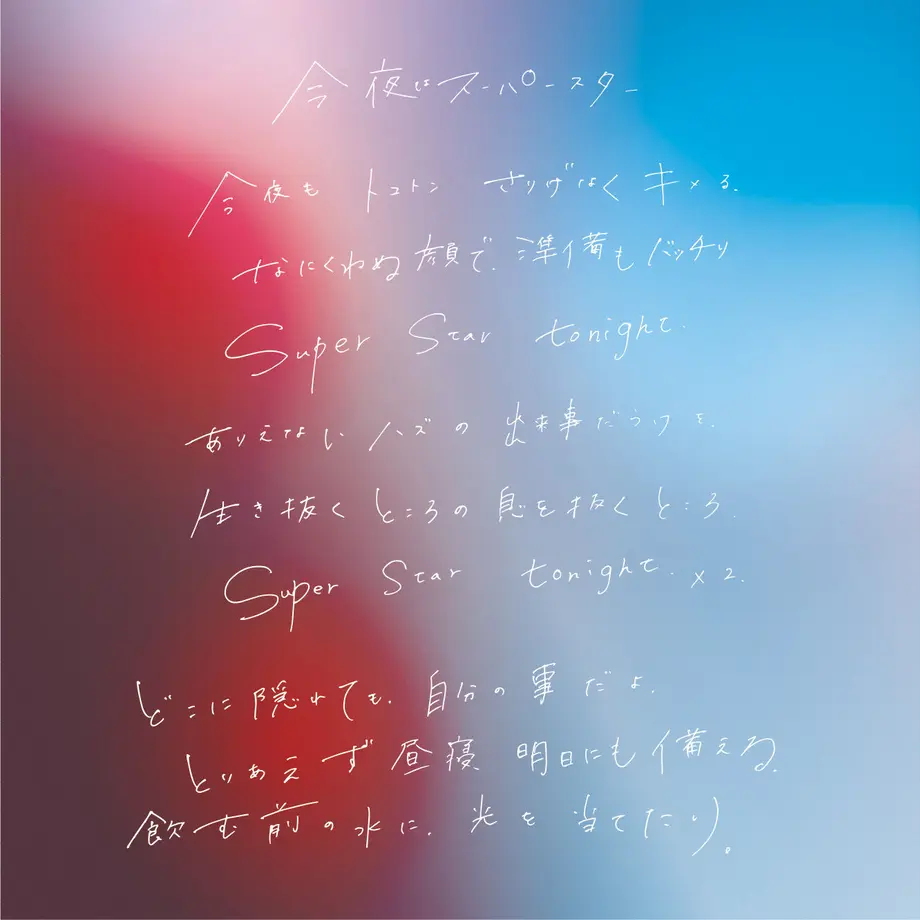 今夜はスーパースター
今夜も トコトン さりげなく キメる.
なにくわぬ顔で. 準備もバッチリ
Super Star tonight.
ありえない ハズの 出来事だらけを.
生き抜く ところの 息を抜く ところ.
Super Star tonight. x 2.
どこに隠れても. 自分の事だよ.
とりあえず 昼寝 明日にも備える.
飲む前の水に. 光を 当てたり。